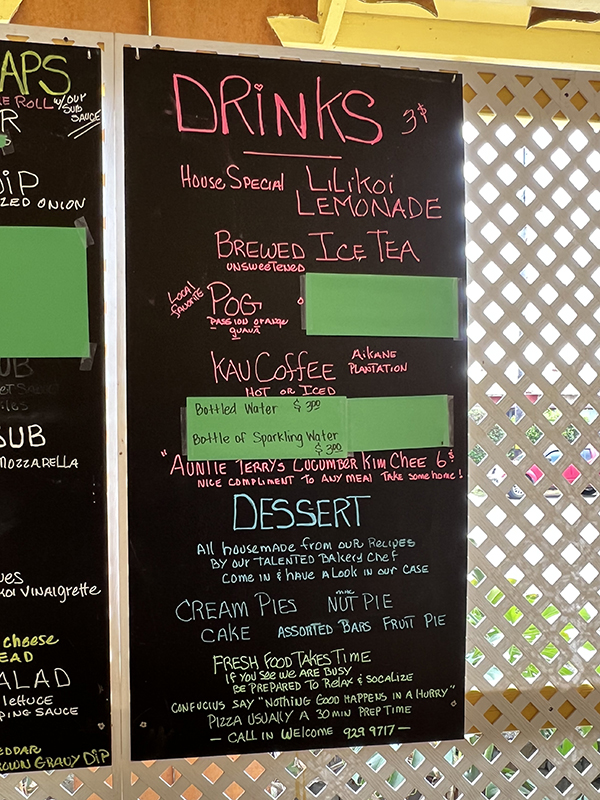 APS
E ROLL w/ OUR
SUB
SAUCE
R
DIP
ZED ONION
UB
SUB
MOZZARELLA
UES
KOI VINAIGRETTE
cheese
EAD
ALAD
lettuce
PING SAUCE
EDDAR
OWN GRAVY DIP
DRINKS 3$
House Special LiLiKoi
LEMONADE
BREWED ICE TEA
UNSWEETENED
LOCAL
favorite
POG
PASSION ORANGE
GUAVA
KAU COFFEE AIKANE
PLANTATION
HOT OR ICED
Bottled Water $3.00
Bottle of Sparkling Water
$3.00
"AUNTIE TERRYS CUCUMBER KIM CHEE 6$
NICE COMPLIMENT TO ANY MEAL TAKE some home!
DESSERT
All housemade from our Recipes
BY OUR TALENTED BAKERY CHEF
COME IN & HAVE A LOOK IN OUR CASE
CREAM PIES mac NUT PIE
CAKE ASSORTED BARS FRUIT PIE
FRESH FOOD TAKES TIME
IF YOU SEE WE ARE BUSY
BE PREPARED TO RELAX & SOCALIZE
CONFUCIUS SAY "NOTHING GOOD HAPPENS IN A HURRY"
PIZZA USUALLY A 30 MIN PREP TIME
— CALL IN WELCOME 929 9717 —